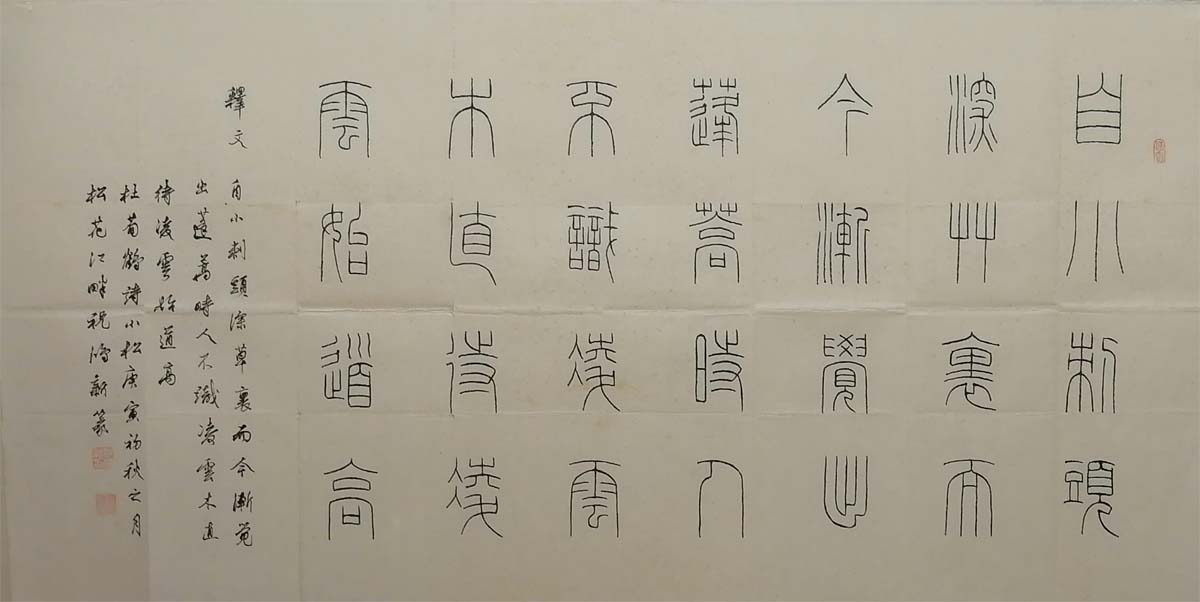 自小刺頭
深艸裏而
今漸覺出
蓬蒿時人
不識凌雲
木直待凌
雲始道高
釋文 自小刺頭深草裏而今漸覺
出蓬蒿時人不識凌雲木直
待凌雲始道高
杜荀鶴詩小松庚寅初秋之月
松花江畔祝鴻新篆